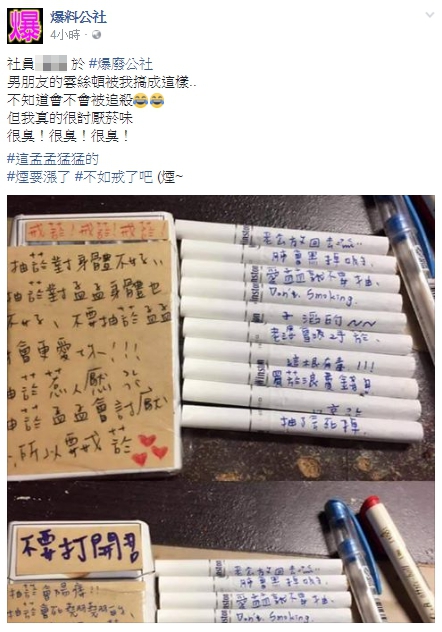 爆
爆料公社
4小時
社員 於 #爆廢公社
男朋友的雲絲頓被我搞成這樣..
不知道會不會被追殺😂😂
但我真的很討厭菸味
很臭！很臭！很臭！
#這孟孟猛猛的
#煙要漲了 #不如戒了吧 (煙~
戒菸!戒菸!戒菸!
抽菸對身體不好、
抽菸對孟孟身體也
不好、不要抽菸孟孟
會更愛你!!!
抽菸惹人厭
抽菸孟孟會討厭
所以要戒菸
老公放回去
肺會黑掉Ok?
愛孟孟就不要抽.
Don't. Smoking.
這根有毒!!!
買菸浪費錢
抽了會死掉
Winston
不要打開君
抽菸會陽痿!!
肺會黑掉Ok?
愛孟孟就不要抽.
Don't. Smoking.